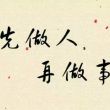 先做人
再做事